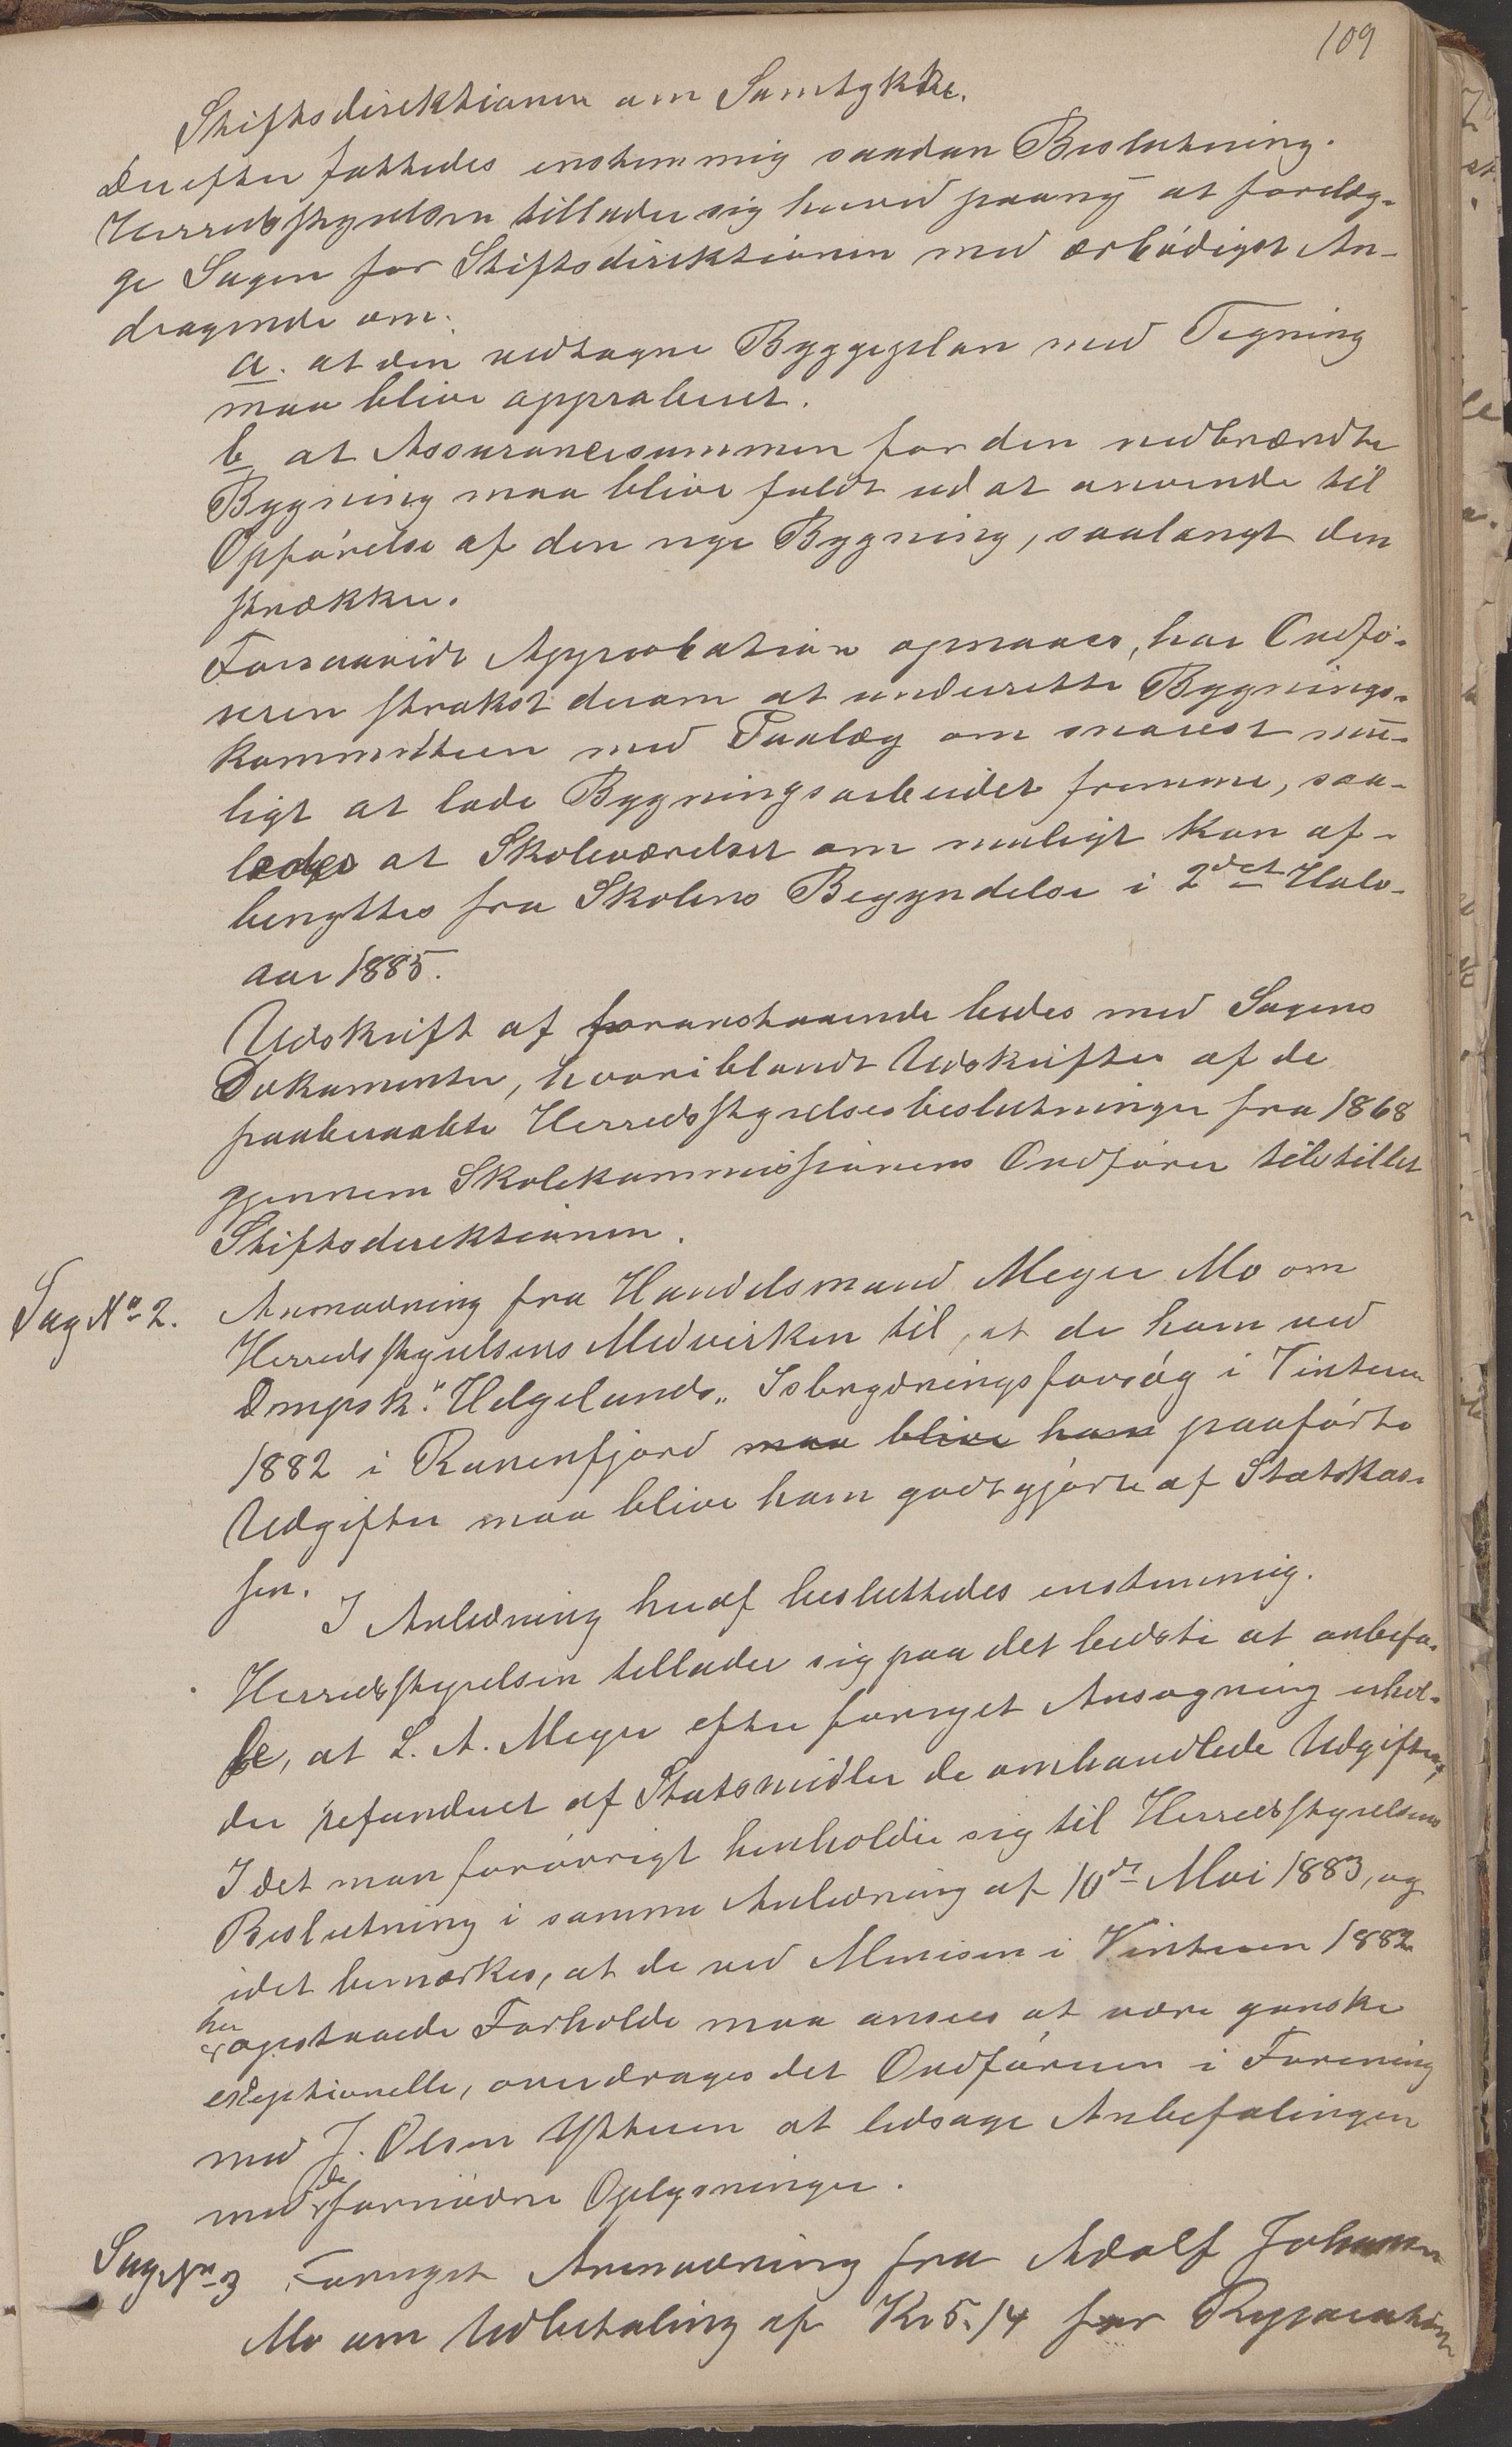 109
Stiftsdirektionen om Samtykke.
Derefter fattedes enstemmig saadan Beslutning.
Herredsstyrelsen tillader sig herved paany at forelæg-
ge Sagen for Stiftsdirektionen med ærbødigst An-
dragende om:
a. at den vedtagne Byggeplan med Tegning
maa blive approberet.
b at Assurancesummen for den nedbrændte
Bygning maa blive fuldt ud at anvende til
Opførelse af den nye Bygning, saalangt den
strækker.
Forsaavidt Approbation opnaaes, har Ordfø-
reren strakst derom at underrette Bygnings-
kommitteen med Paalæg om snarest mu-
ligt at lade Bygningsarbeidet fremme, saa-
ledes at Skoleværelset om muligt kan af-
benyttes fra Skolens Begyndelse i 2det Halv-
aar 1885.
Udskrift af foranstaaende bedes med Sagens
Dokumenter, hvoriblandt Udskrifter af de
paaberaabte Herredsstyrelsesbeslutninger fra 1868
gjennem Skolekommissionens Ordfører tilstillet
Stiftsdirektionen.
Sag No 2. Anmodning fra Handelsmand Meyer Mo om
Herredsstyrelsens Medvirken til, at de ham ved
Dmpsk. "Helgelands" Isbrydningsforsøg i Vinteren
1882 i Ranenfjord maa blive ham paaførte
Udgifter maa blive ham godtgjorte af Statskas-
sen.
I Anledning heraf besluttedes enstemmig.
Herredsstyrelsen tillader sig paa det bedste at anbefa-
le, at L. A. Meyer efter fornyet Ansøgning erhol-
der refunderet af Statsmidler de omhandlede Udgifter,
I det man forøvrigt henholder sig til Herredsstyrelsens
Beslutning i samme Anledning af 10de Mai 1883, og
idet bemærkes, at de ved Menisen i Vinteren 1882
her
opstaaede Forholde maa ansees at være ganske
exeptionelle, overdrages det Ordføreren i Forening
med J. Olsen Ytteren at ledsage Anbefalingen
de
med fornødne Oplysninger.
Sag No 3 Fornyet Anmodning fra Adolf Johansen
Mo om Udbetaling af Kr 5.14 for Reparation